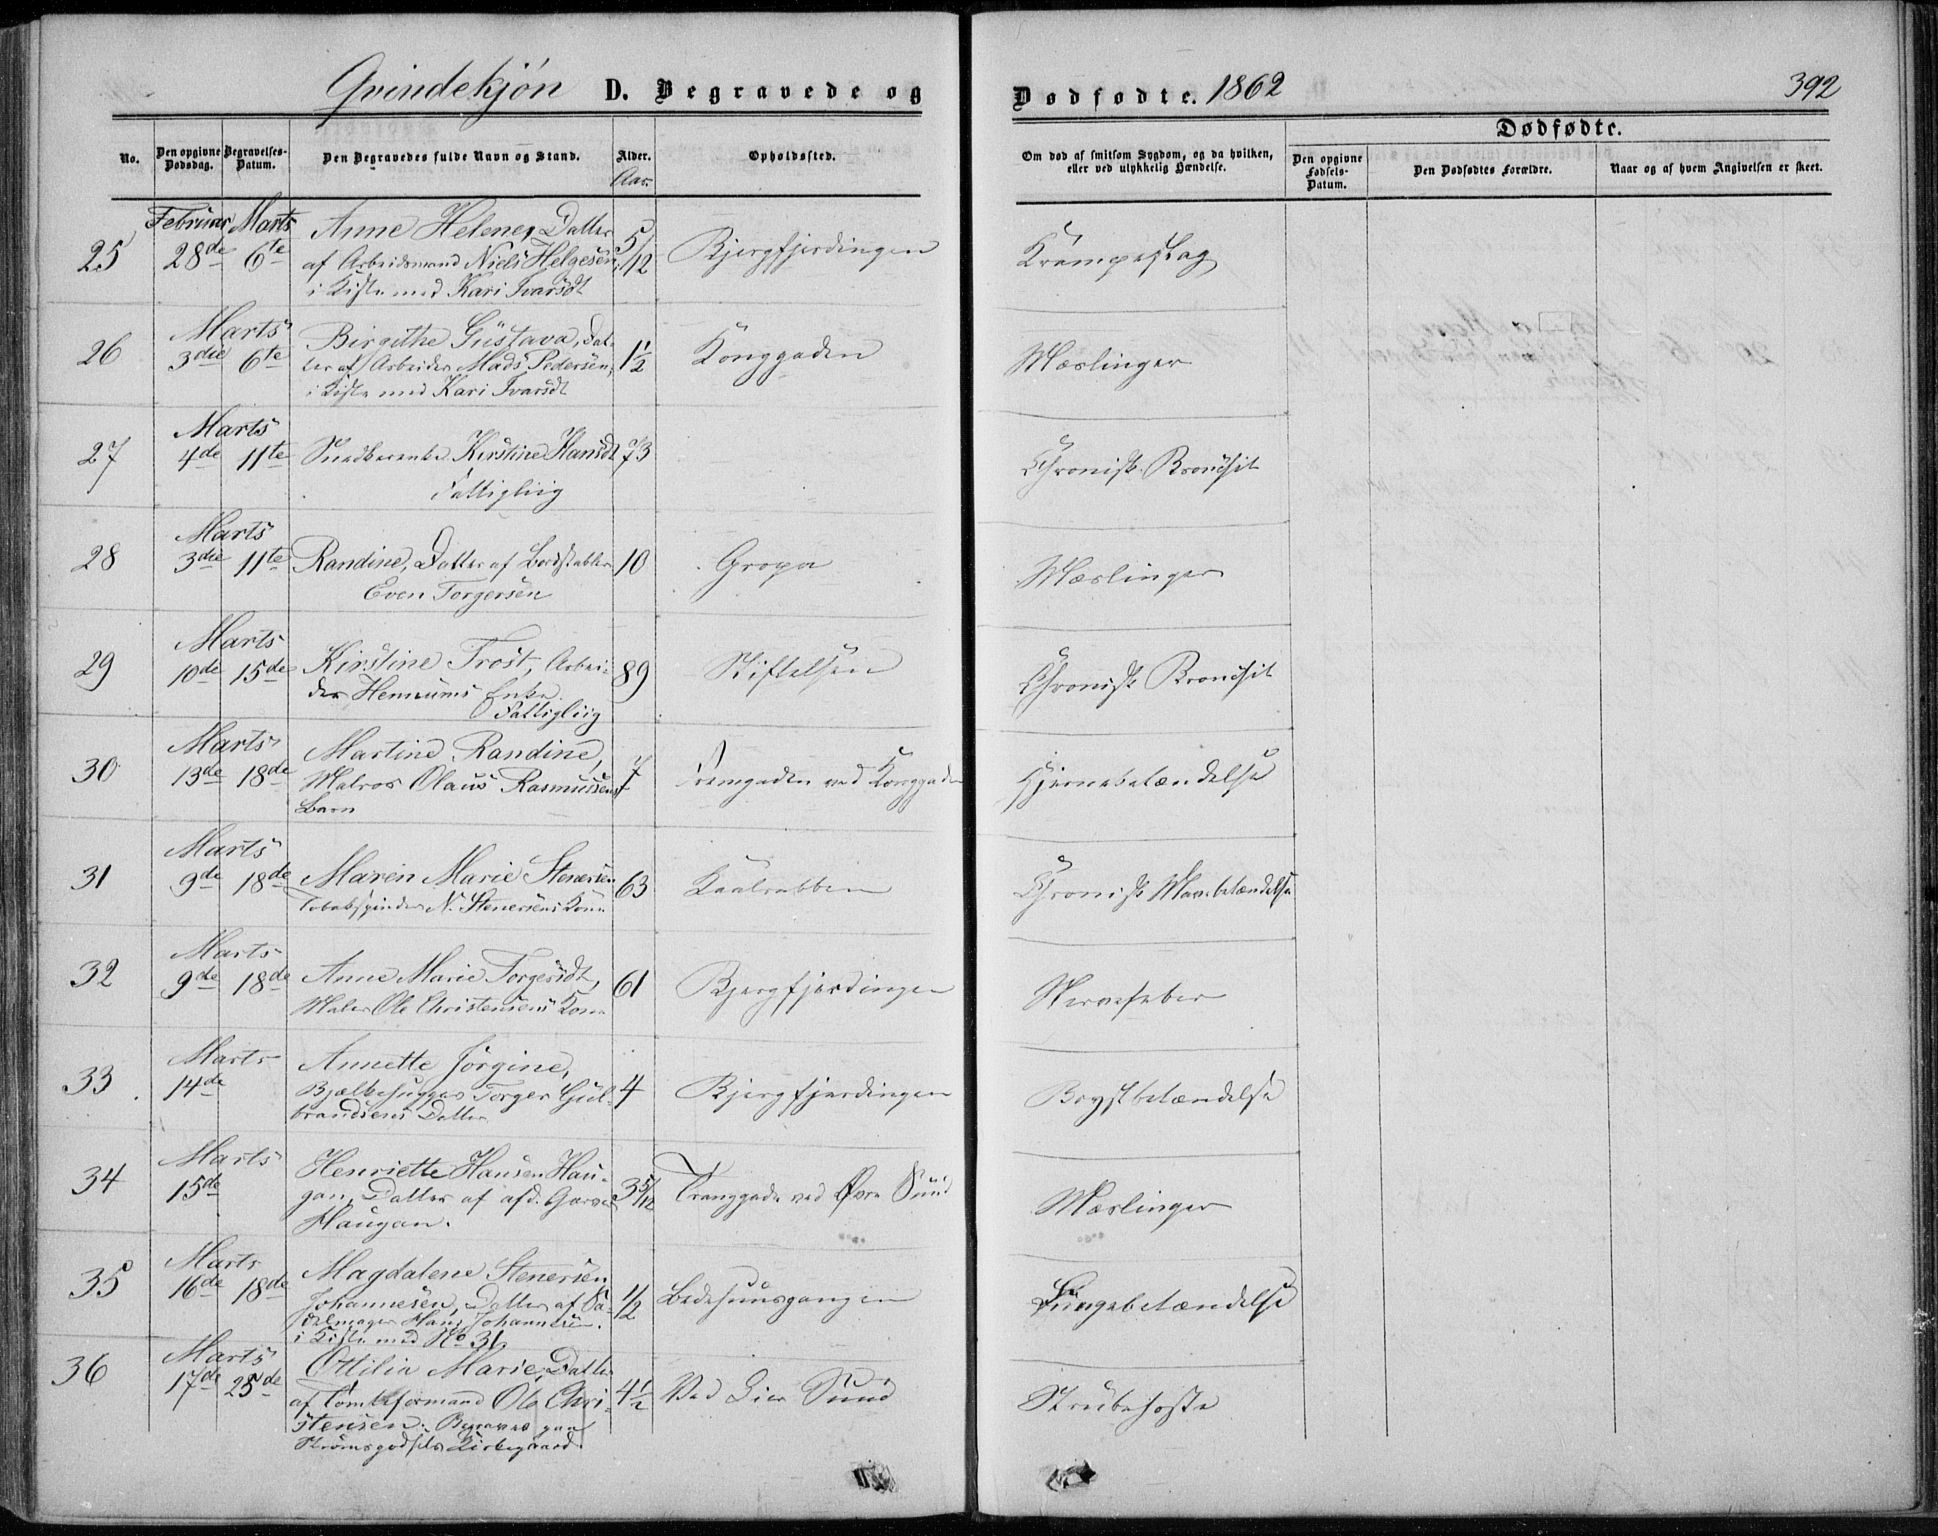 Qvindekjön D. Begravede og Dødfødte. 1862 392
Dødfødte.
No. Den opgivne Dødsdag. Begravelses-Datum. Den Begravedes fulde Navn og Stand. Alder. Opholdssted. Om død af smitsom Sygdom, og da hvilken, eller ved ulykkelig Hændelse. Den opgivne Fødsels-Datum. Den Dødfødtes Forældre. Naar og af hvem Angivelsen er skeet.
Aar.
Februar Marts Anne Helene, Datter
25 28de 6te af Arbeidsmand Niels Helgesen 5/12 Bjergfjerdingen Krampeslag
i Kiste med Kari Ivarsdt
Marts Birgithe Gustava, Dat-
26 3die 6te ter af Arbeider Mads Pedersen, 1½ Konggaden Mæslinger
i Kiste med Kari Ivarsdt
Marts
27 4de 11te Snedkerenke Kirstine Hansdt 73 Chronisk Bronchit
Fattigliig
Marts
28 3die 11te Randine, Datter af Bordstabler 10 Gropa Mæslinger
Even Torgersen
Marts
29 10de 15de Kirstine Trost, Arbei- 89 Stiftelsen Chronisk Bronchit
der Hemeums Enke.
Fattigliig
Marts Martine Randine,
30 13de 18de Matros Olaus Rasmussens 7 Tverrgaden ved Konggaden Hjernebetændelse
Barn
Marts
31 9de 18de Maren Marie Stenersen 63 Kaalrabben Chronisk Mavebetændelse
Tobakspinder N. Stenersens Kone
Marts
32 9de 18de Anne Marie Torgersdt, 61 Bjergfjerdingen Nervefeber
Maler Ole Christensens Kone
Marts Annette Jörgine,
33 14de Bjælkehugger Torger Gul- 4 Bjergfjerdingen Brystbetændelse
brandsens Datter
Marts Henriette Hansen Hau-
34 15de gan, Datter af afd. Garver 3 5/12 Tranggade ved Øvre Sund Mæslinger
Haugan.
Marts Magdalene Stenersen
35 16de 18de Johannesen, Datter af Sa- 1/2 Bedehuusgangen Lungebetændelse
delmager Hans Johannesen.
i Kiste med No 31.
Marts Ottilia Marie, Datter
36 17de 25de af Tomteformand Ole Chri- 4½ Ved Lier Sund Strubehoste
stensen. Begraves paa
Strømsgodsets Kirkegaard.